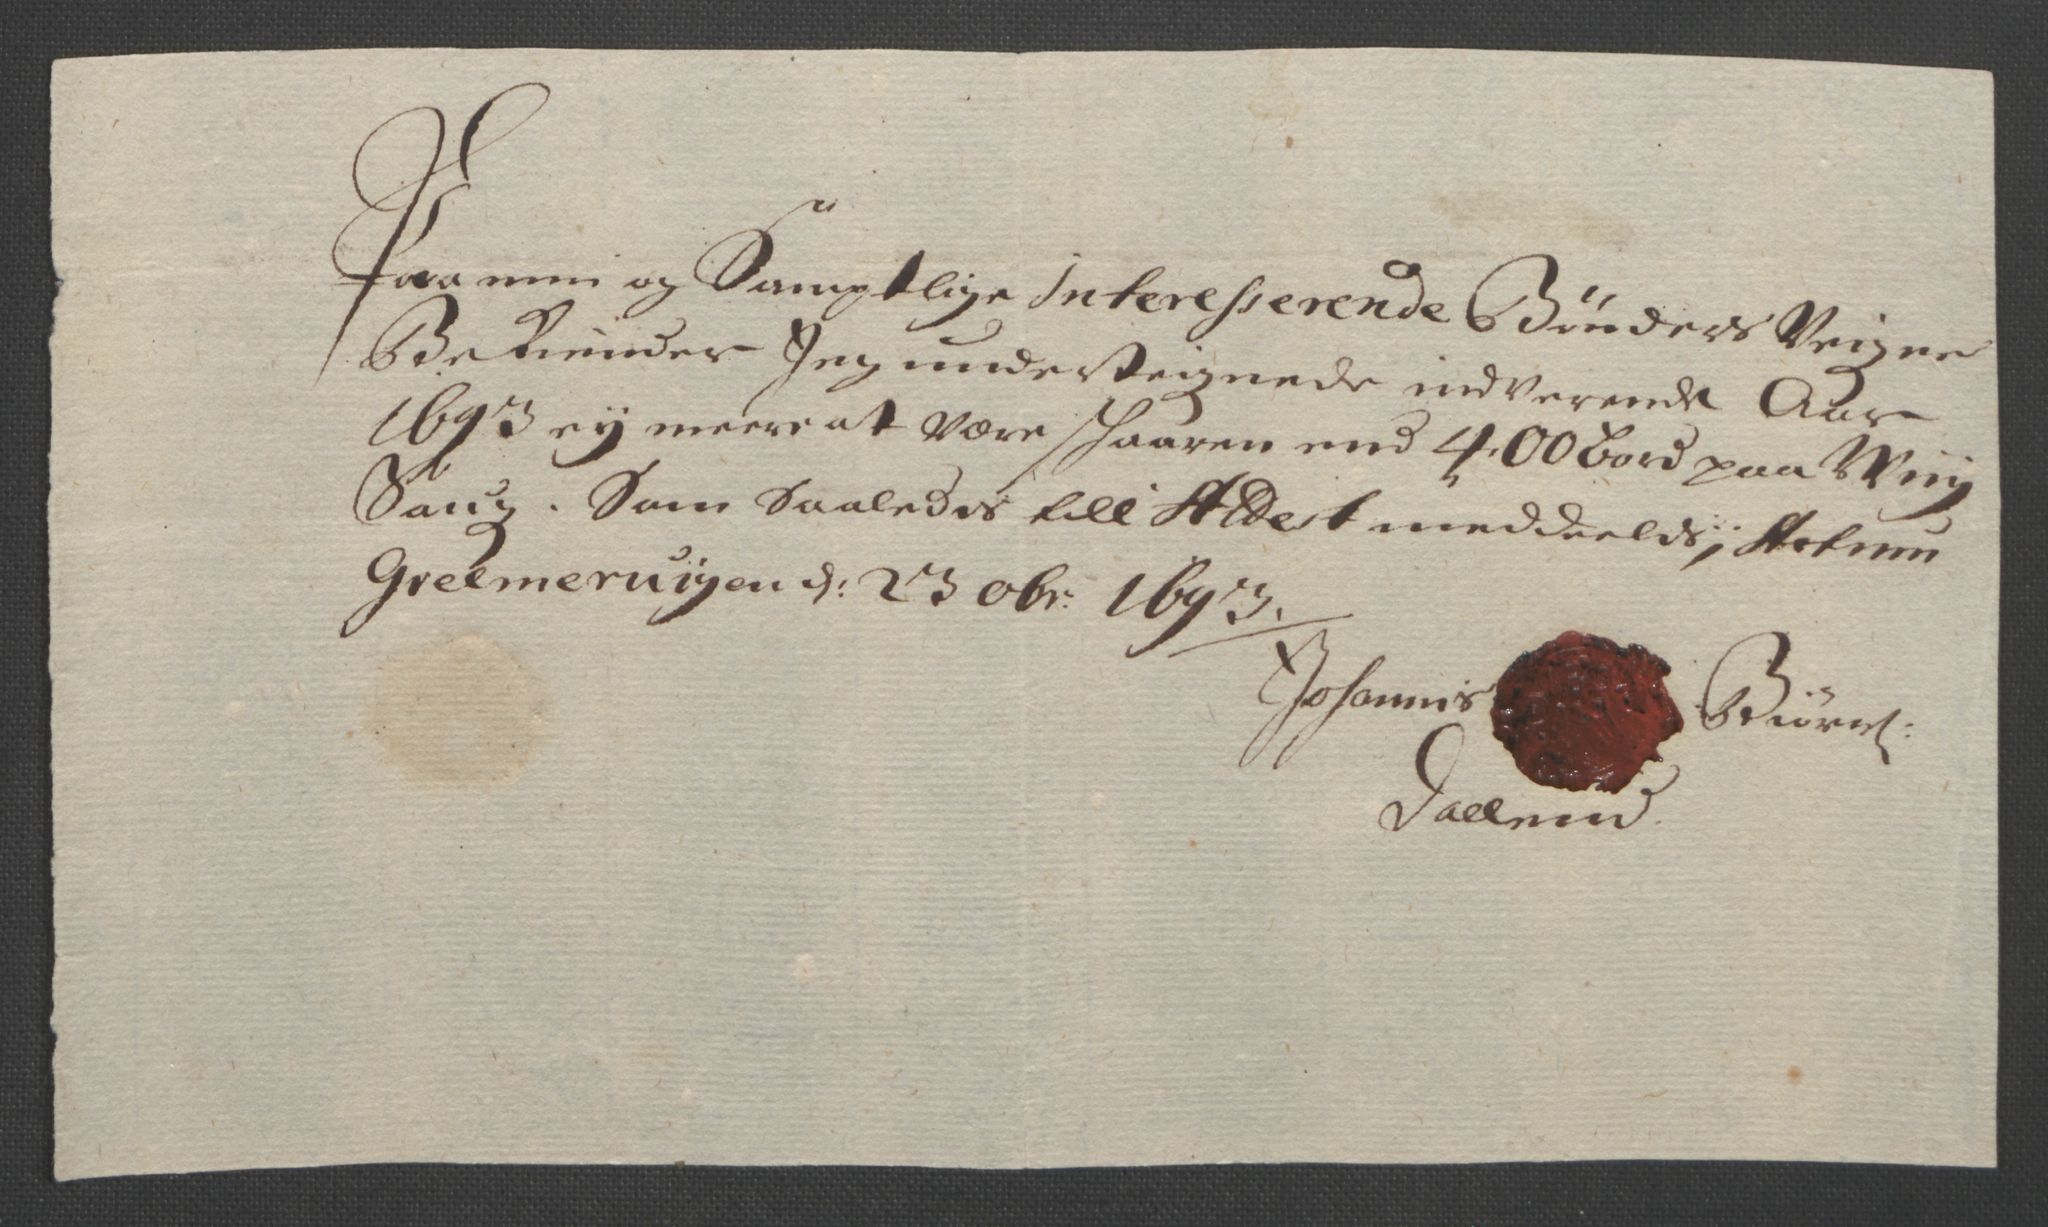 Paa min og Samptlige Interesserende Bønders Veigne
Bekiender Jeg underteignede indverende Aar
1693 ey meere at være skaaren end 400 bord paa Wiig
Saug. Som saaledis till Attest meddeelds, Actum
Greelmeruigen d: 23 obr: 1693.
Johannis Biørn:
Dallend